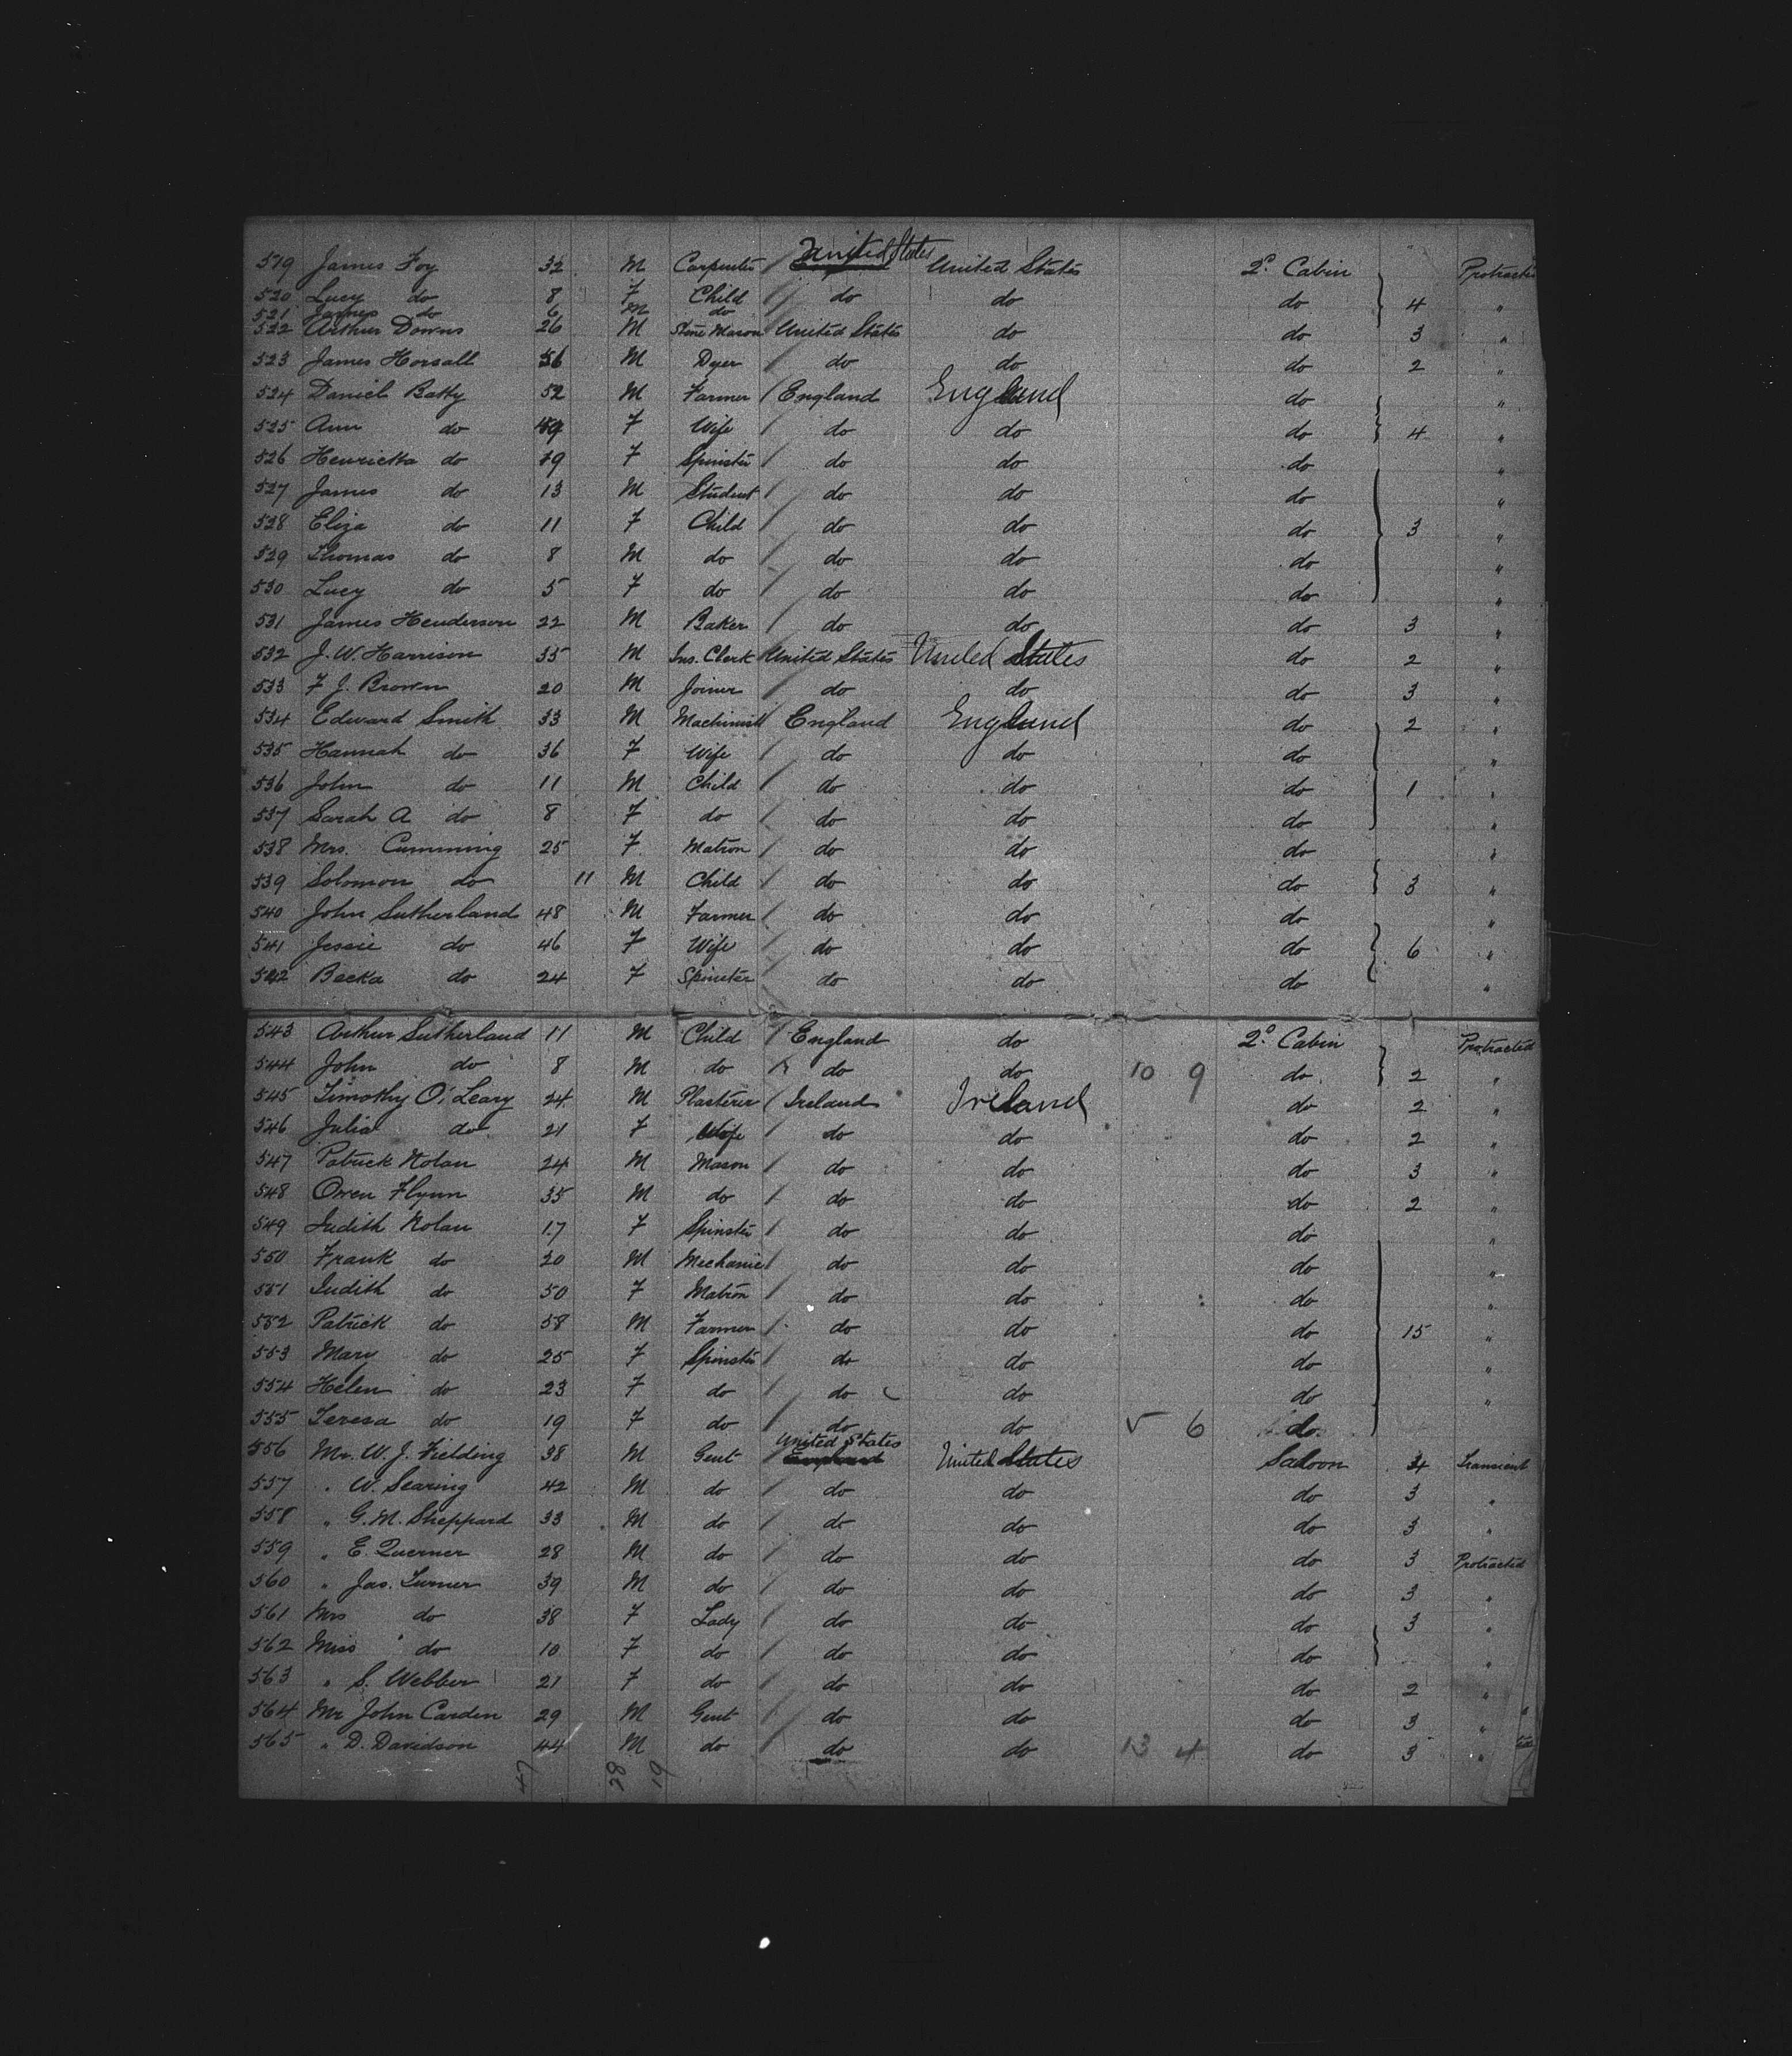 519 James Foy 32 M Carpenter / United States United States 2º Cabin Protracted
520 Lucy do 8 F Child / do do do 4 "
521 James do 6 M do
522 Arthur Downs 26 M Stone Mason United States do do 3 "
523 James Horsall 56 M Dyer / do do do 2 "
524 Daniel Batty 52 M Farmer / England England do "
525 Ann do 49 F Wife / do do do 4 "
526 Henrietta do 19 F Spinster / do do do "
527 James do 13 M Student / do do do "
528 Eliza do 11 F Child / do do do 3 "
529 Thomas do 8 M do / do do do "
530 Lucy do 5 F do / do do do "
531 James Henderson 22 M Baker / do do do 3 "
532 J. W. Harrison 35 M Ins. Clerk United States United States do 2 "
533 F J. Brown 20 M Joiner / do do do 3 "
534 Edward Smith 33 M Machinist England England do 2 "
535 Hannah do 36 F Wife / do do do "
536 John do 11 M Child / do do do 1 "
537 Sarah A do 8 F do / do do do "
538 Mrs. Cumming 25 F Matron / do do do "
539 Solomon do 11 M Child / do do do 3 "
540 John Sutherland 48 M Farmer / do do do "
541 Jessie do 46 F Wife / do do do 6 "
542 Becka do 24 F Spinster / do do do "
543 Arthur Sutherland 11 M Child / England do 2º Cabin Protracted
544 John do 8 M do / do do 10 9 do 2 "
545 Timothy O'Leary 24 M Plasterer / Ireland Ireland do 2 "
546 Julia do 21 F Wife / do do do 2 "
547 Patrick Nolan 24 M Mason / do do do 3 "
548 Owen Flynn 35 M do / do do do 2 "
549 Judith Nolan 17 F Spinster / do do do "
550 Frank do 20 M Mechanic / do do do "
551 Judith do 50 F Matron / do do do "
552 Patrick do 58 M Farmer / do do do 15 "
553 Mary do 25 F Spinster / do do do "
554 Helen do 23 F do / do do do "
555 Teresa do 19 F do / do do 5 6 do
556 Mr. W. J. Fielding 38 M Gent / United States United States Saloon 4 Transient
557 " W. Searing 42 M do / do do do 3 "
558 " G. M. Sheppard 33 M do / do do do 3 "
559 " E. Querner 28 M do / do do do 3 Protracted
560 " Jas. Turner 39 M do / do do do 3 "
561 Mrs do 38 F Lady / do do do 3 "
562 Miss do 10 F do / do do do "
563 " S. Webber 21 F do / do do do 2 "
564 Mr John Carden 29 M Gent / do do do 3 "
565 " D. Davidson 44 M do / do do 13 4 do 3 "
47 28 19